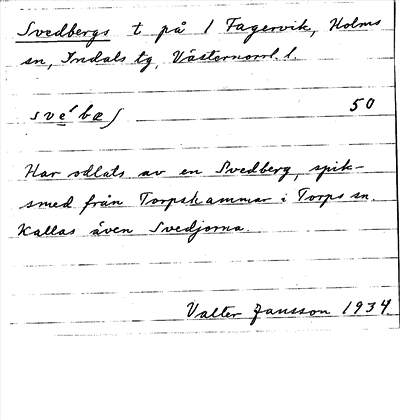 Svedbergs t på 1 Fagervik, Holms
sn, Indals tg, Västernorrl. l.
svè́bæʃ 50
Har odlats av en Svedberg, spik-
smed från Torpshammar i Torps sn.
Kallas även Svedjorna.
Valter Jansson 1934.